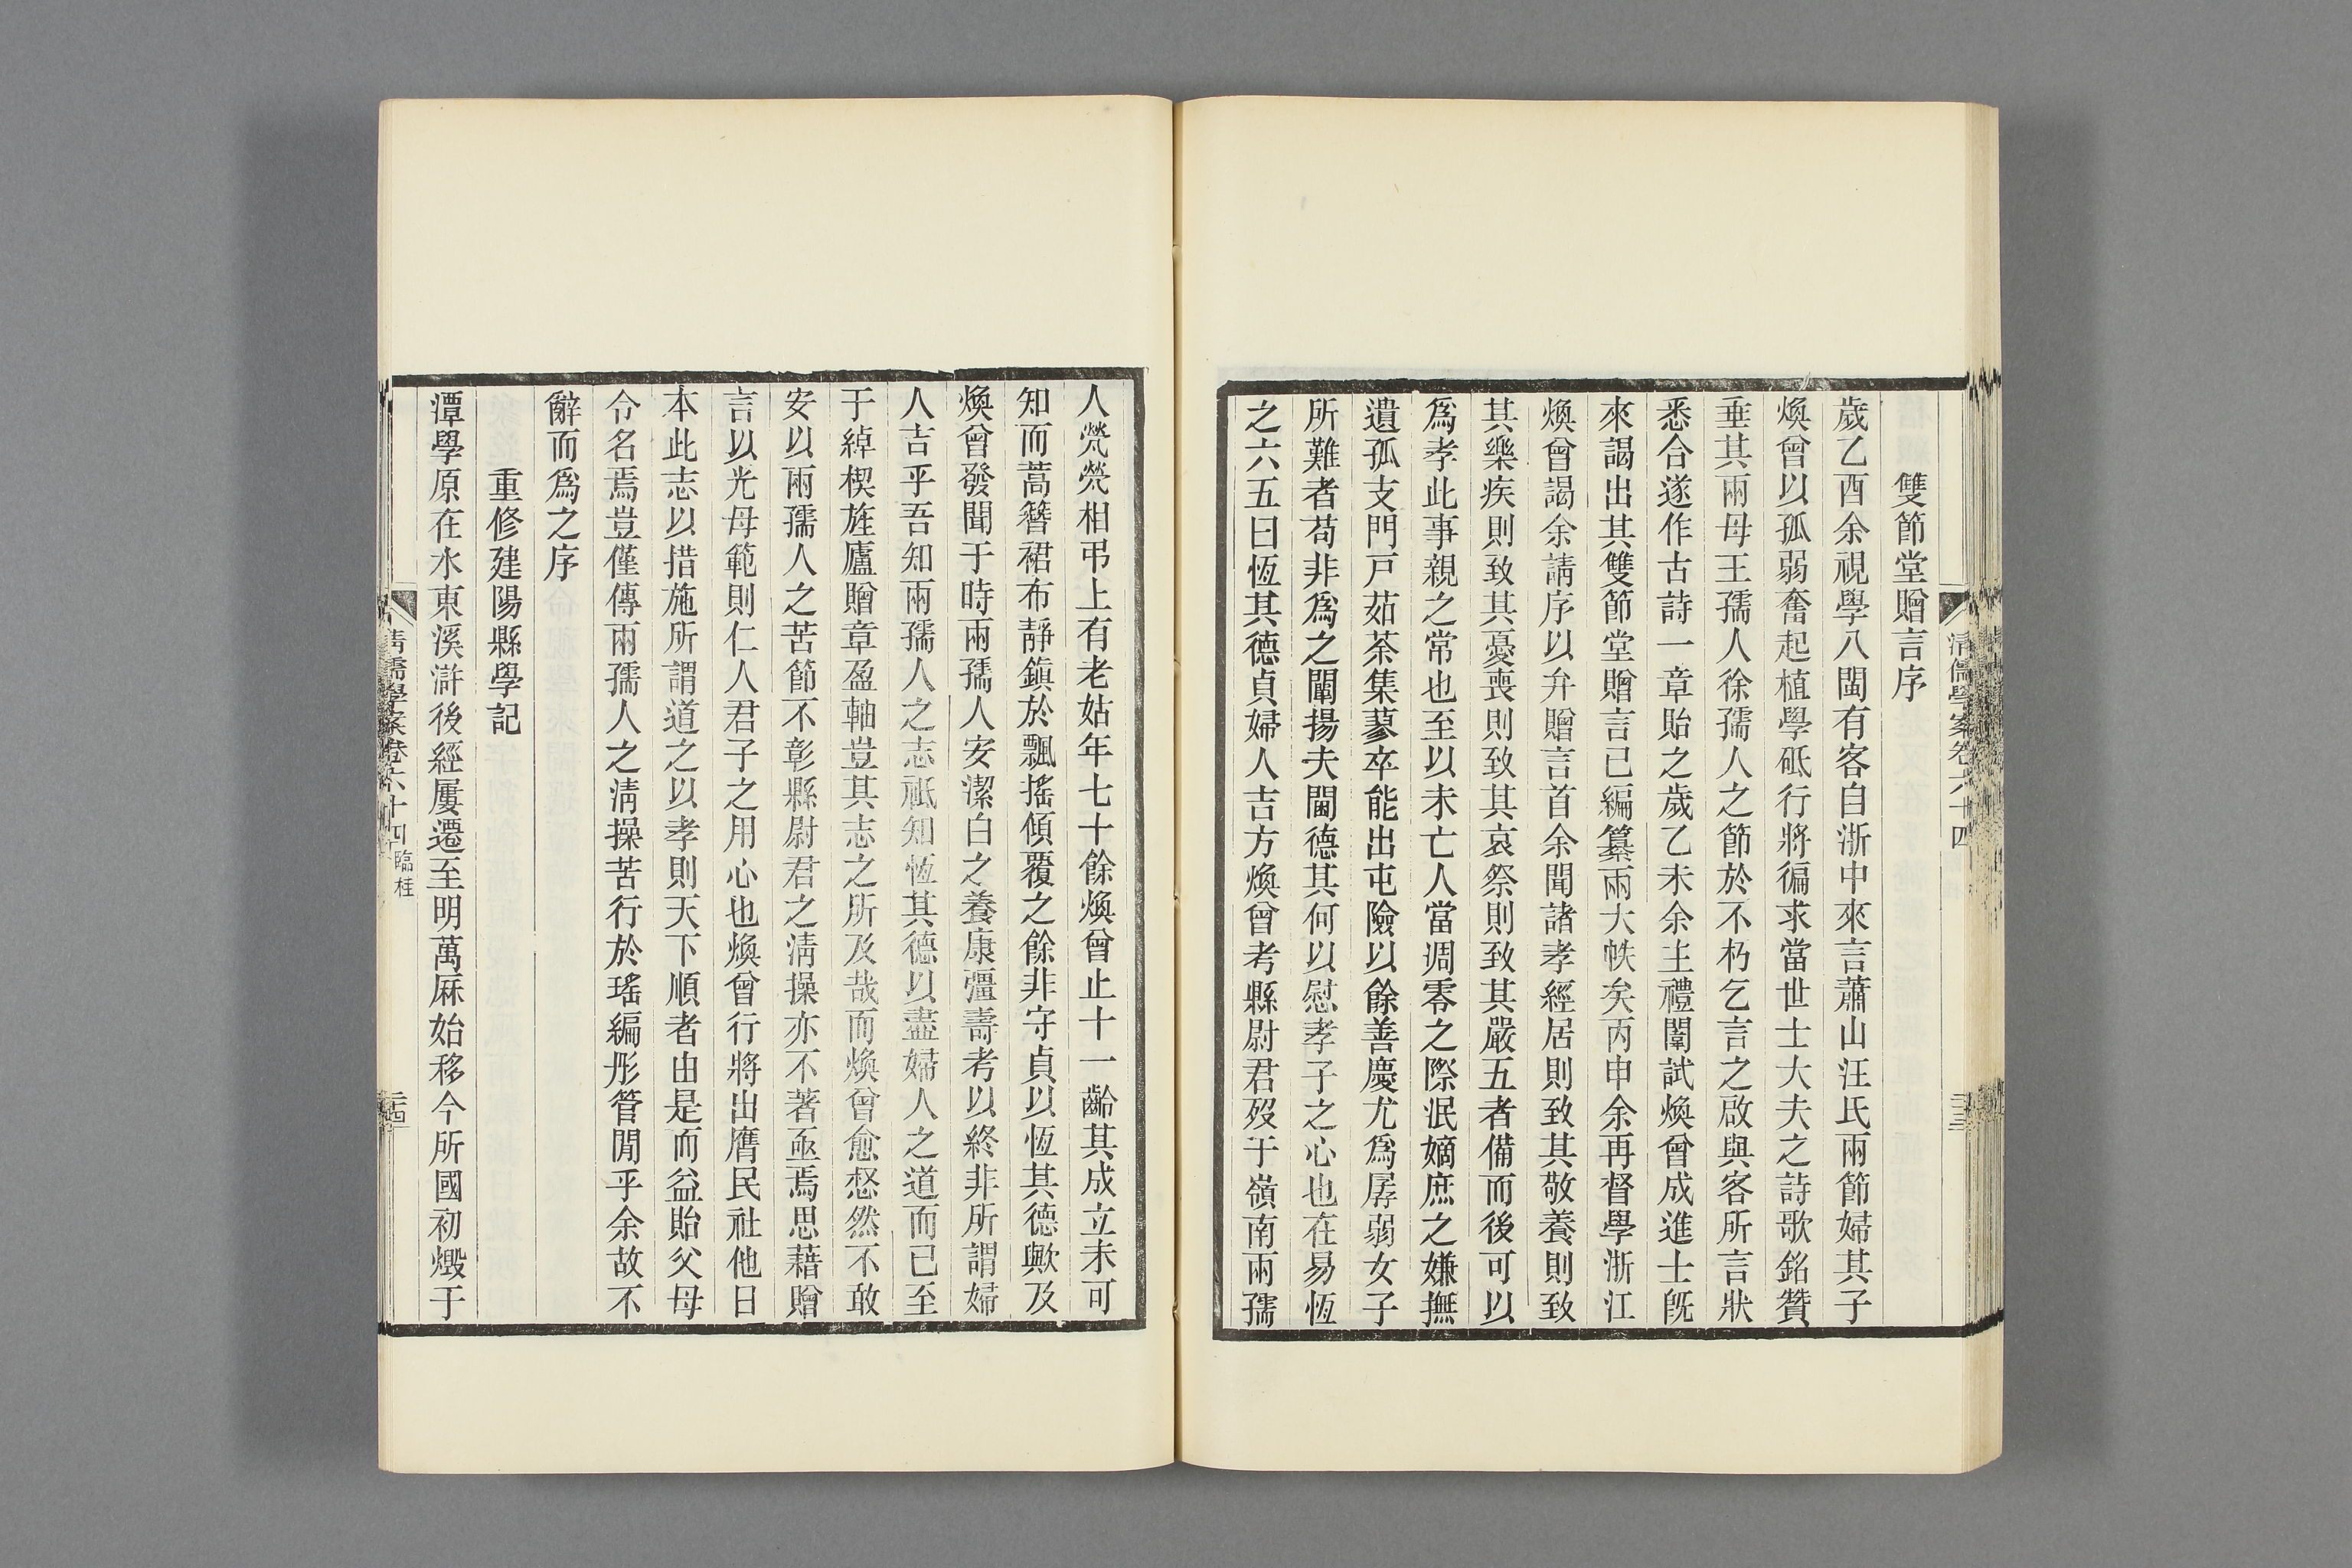 清儒學案卷六十四
二十三
雙節堂贈言序
歲乙酉余視學八閩有客自浙中來言蕭山汪氏兩節婦其子
煥曾以孤弱奮起植學砥行將徧求當世士大夫之詩歌銘贊
垂其兩母王孺人徐孺人之節於不朽乞言之啟與客所言狀
悉合遂作古詩一章貽之歲乙未余主禮闈試煥曾成進士旣
來謁出其雙節堂贈言已編纂兩大帙矣丙申余再督學浙江
煥曾謁余請序以弁贈言首余聞諸孝經居則致其敬養則致
其樂疾則致其憂喪則致其哀祭則致其嚴五者備而後可以
爲孝此事親之常也至以未亡人當凋零之際泯嫡庶之嫌撫
遺孤支門戸茹荼集蓼卒能出屯險以餘善慶尤爲孱弱女子
所難者苟非爲之闡揚夫閫德其何以慰孝子之心也在易恆
之六五曰恆其德貞婦人吉方煥曾考縣尉君歿于嶺南兩孺
人焭焭相弔上有老姑年七十餘煥曾止十一齡其成立未可
知而蒿簪裙布靜鎭於飄搖傾覆之餘非守貞以恆其德歟及
煥曾發聞于時兩孺人安潔白之養康彊壽考以終非所謂婦
人吉乎吾知兩孺人之志祗知恆其德以盡婦人之道而已至
于綽楔旌廬贈章盈軸豈其志之所及哉而煥曾愈惄然不敢
安以兩孺人之苦節不彰縣尉君之淸操亦不著亟焉思藉贈
言以光母範則仁人君子之用心也煥曾行將出膺民社他日
本此志以措施所謂道之以孝則天下順者由是而益貽父母
令名焉豈僅傳兩孺人之淸操苦行於瑤編彤管閒乎余故不
辭而爲之序
重修建陽縣學記
潭學原在水東溪滸後經屢遷至明萬厤始移今所國初燬于
清儒學案卷六十四 臨桂
二十四